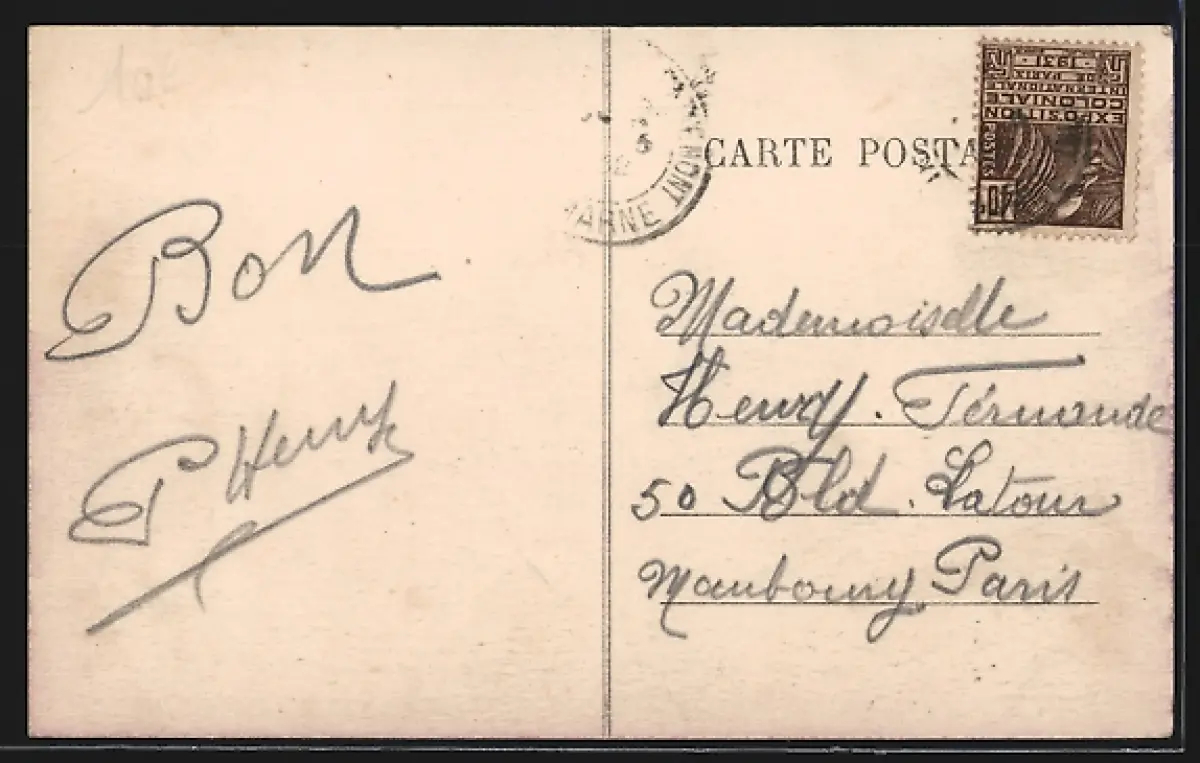 10F
Bon
P Henry
CARTE POSTA
EXPOSITION
COLONIALE
INTERNATIONALE
DE PARIS
1931
POSTES
MARNE
Mademoiselle
Henry. Fernande
50 Bld. Latour
Maubourg Paris